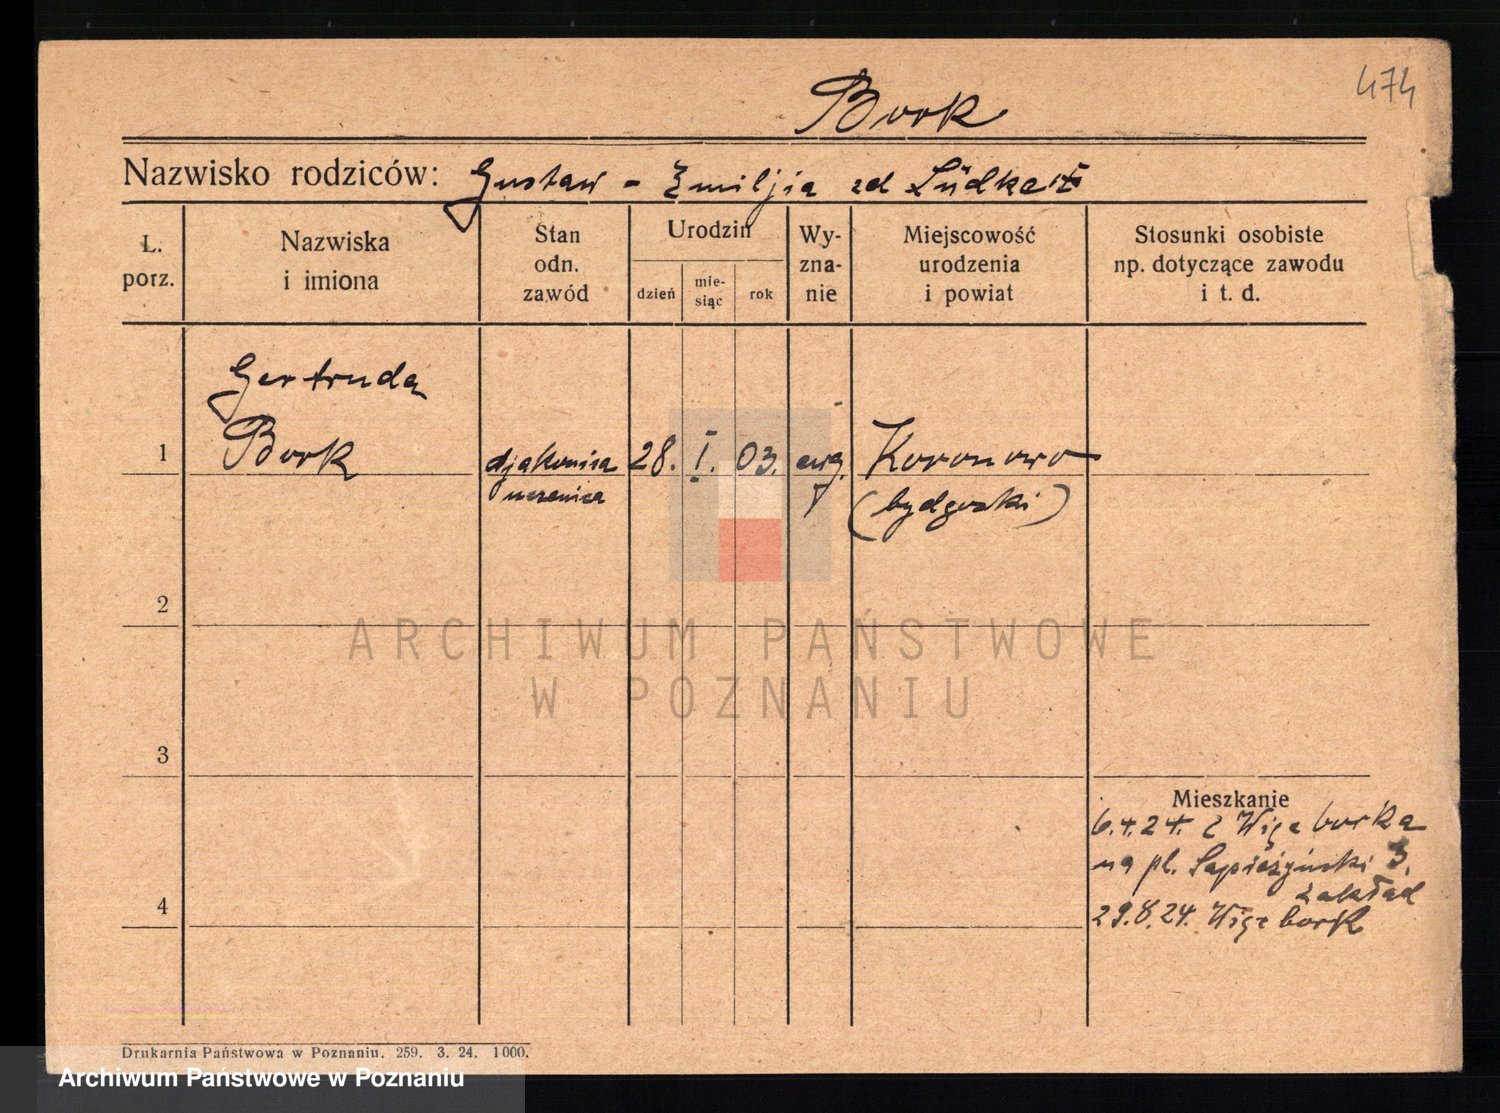 474
Bork
Nazwisko rodziców: Gustaw - Emilja zd Lüdke
L. porz.
Nazwiska i imiona
Stan odn. zawód
Urodzin
dzień
mie-siąc
rok
Wy-zna-nie
Miejscowość urodzenia i powiat
Stosunki osobiste np. dotyczące zawodu i t. d.
Gertruda
1 Bork djakonisa 28. I. 03. ewg. Koronowo
uczenica (bydgoski)
2
ARCHIWUM PAŃSTWOWE
W POZNANIU
3
Mieszkanie
6.4.24. z Więcborka
na pl. Sapieżyński 3,
zakład
4 29.8.24. Więcbork
Drukarnia Państwowa w Poznaniu. 259. 3. 24. 1000.
Archiwum Państwowe w Poznaniu